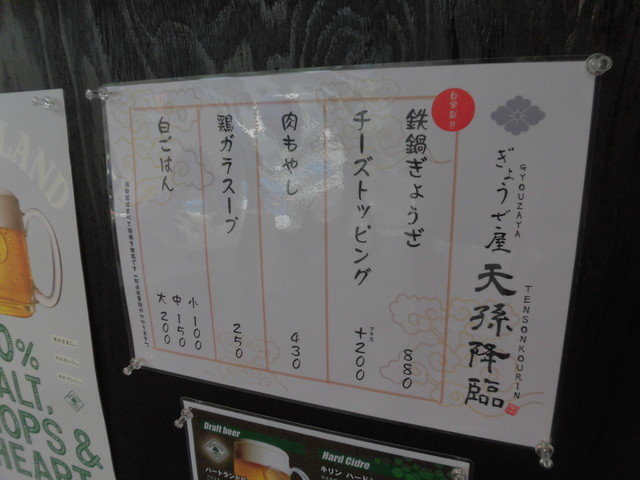 ぎょうざ屋 天孫降臨
GYOUZAYA TENSONKOURIN
自家製!!
鉄鍋ぎょうざ 880
チーズトッピング プラス +200
肉もやし 430
鶏ガラスープ 250
白ごはん
小 100
中 150
大 200
LAND
0%
ALT,
OPS &
HEART
Draft beer
Hard Cidre
ハートランド
キリン ハード